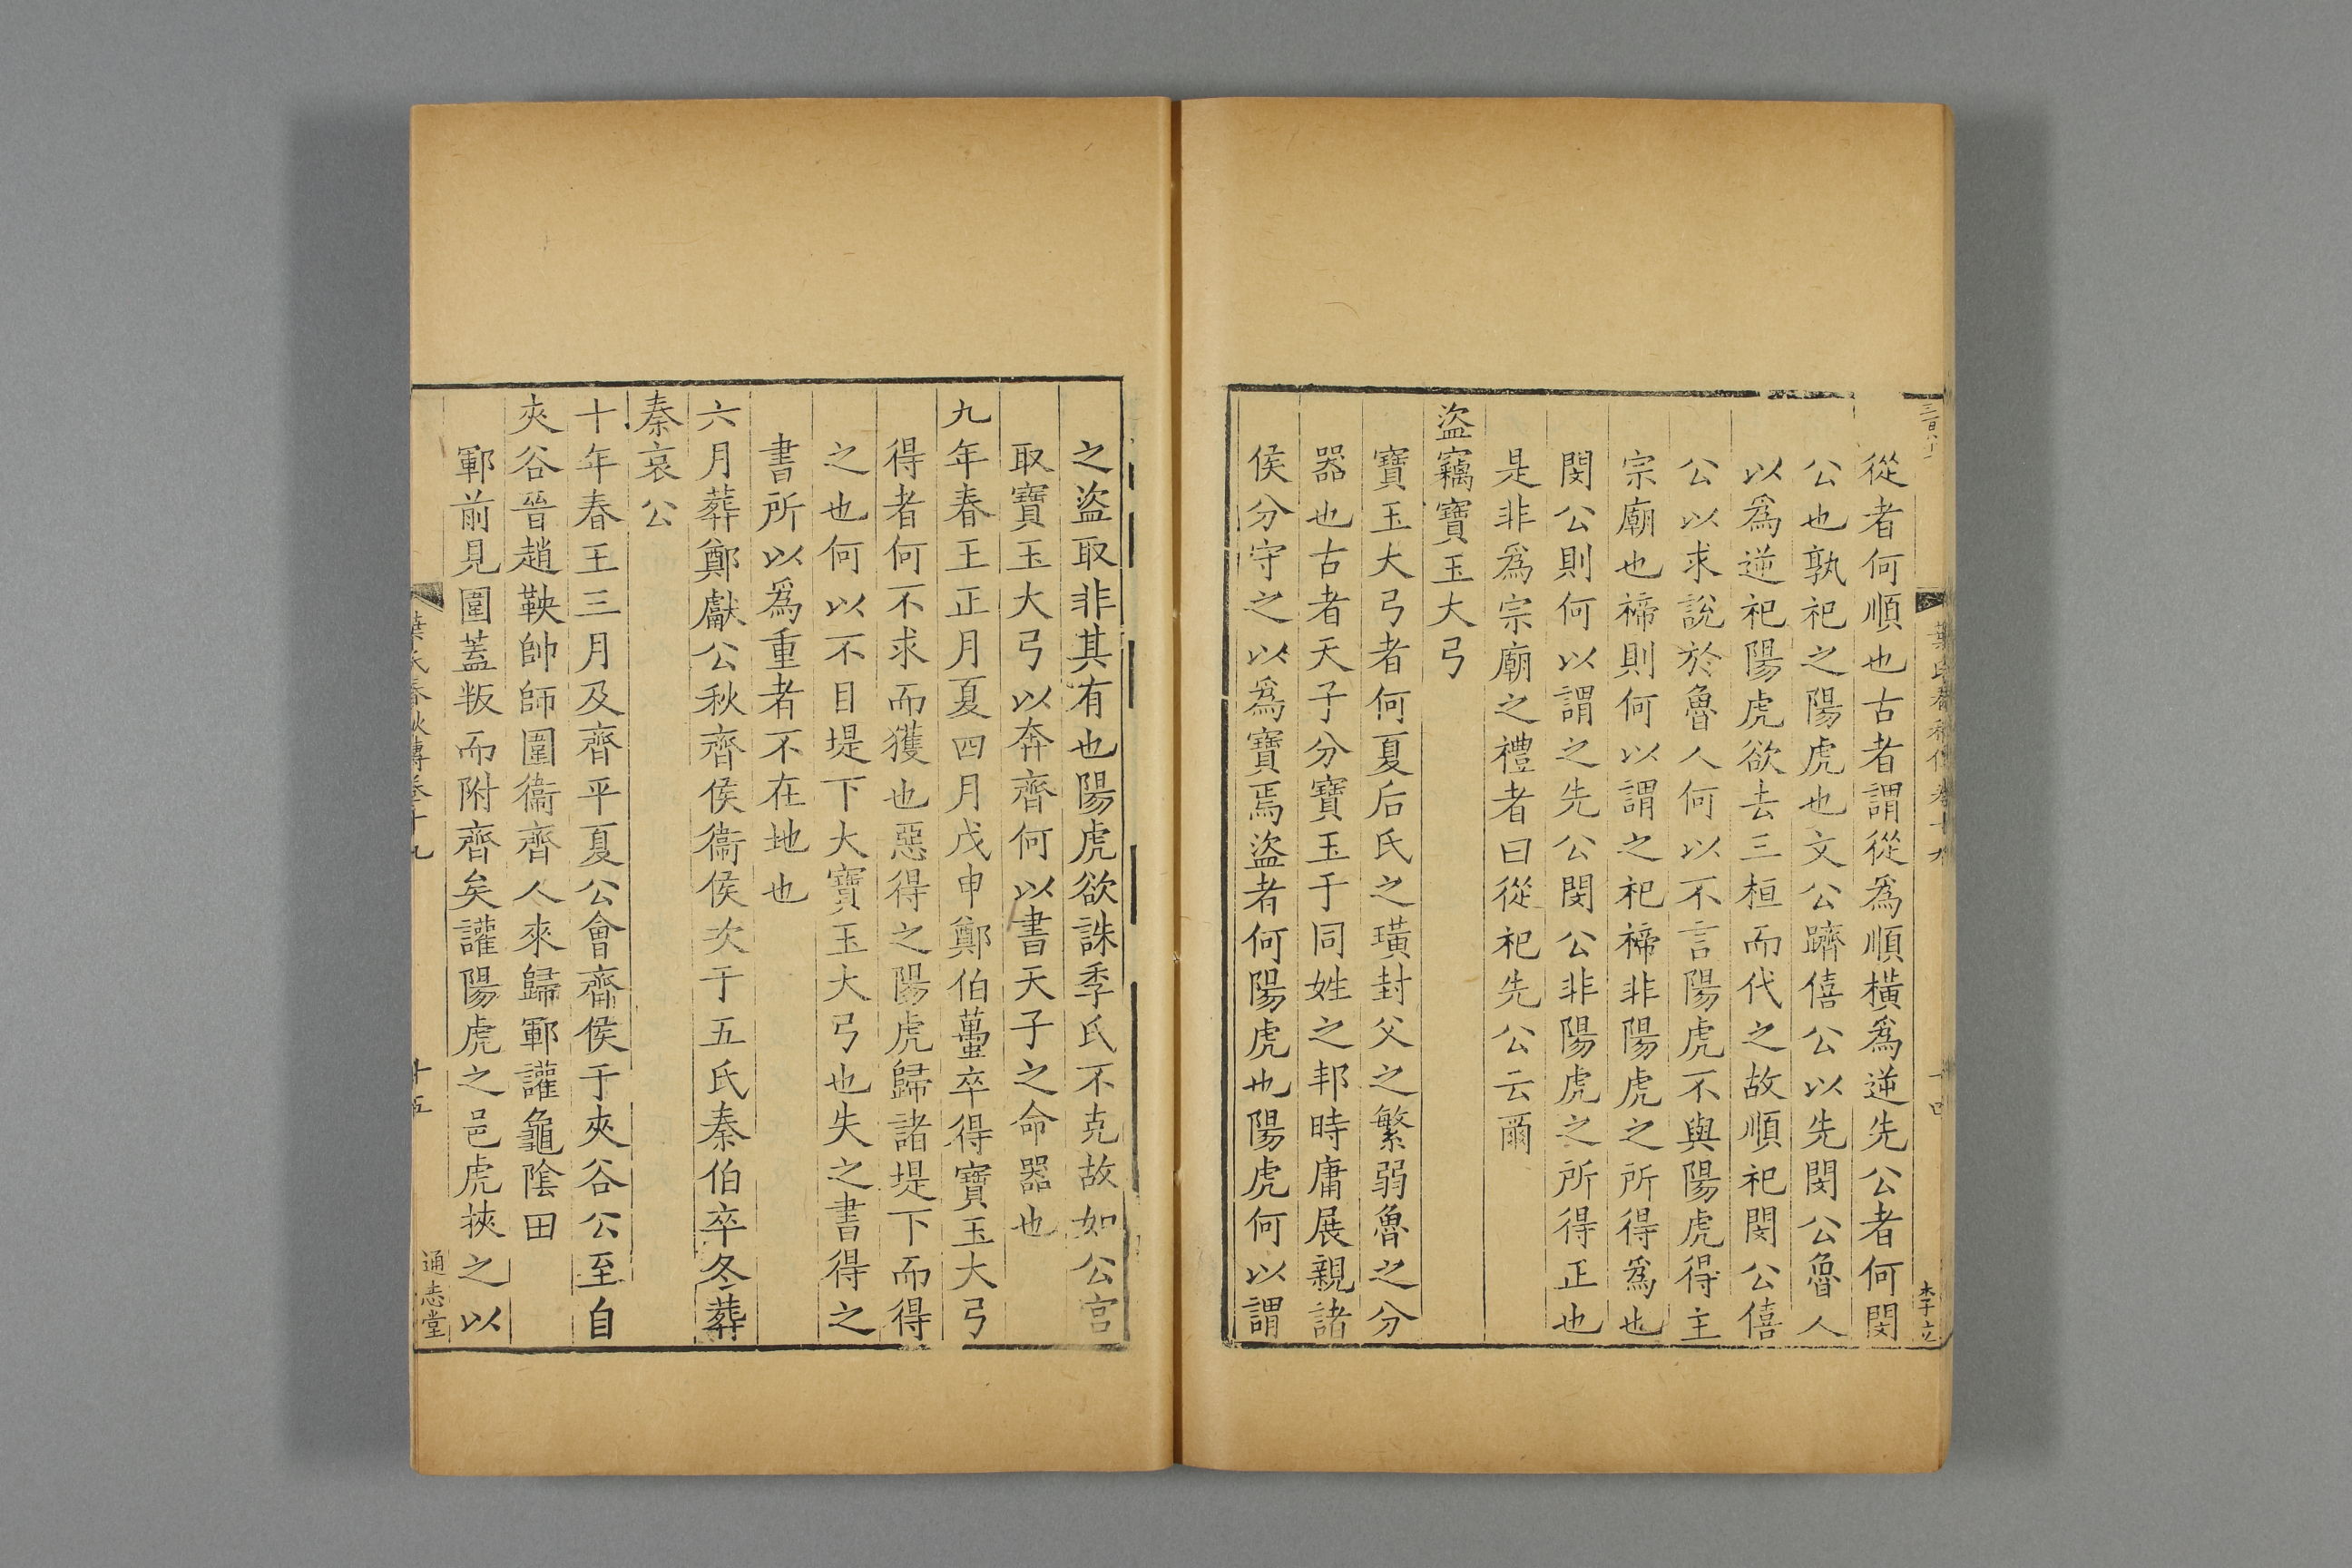 從者何順也古者謂從爲順橫爲逆先公者何閔
公也孰祀之陽虎也文公躋僖公以先閔公魯人
以爲逆祀陽虎欲去三桓而代之故順祀閔公僖
公以求說於魯人何以不言陽虎不與陽虎得主
宗廟也禘則何以謂之祀禘非陽虎之所得爲也
閔公則何以謂之先公閔公非陽虎之所得正也
是非爲宗廟之禮者曰從祀先公云爾
盜竊寶玉大弓
寶玉大弓者何夏后氏之璜封父之繁弱魯之分
器也古者天子分寶玉于同姓之邦時庸展親諸
侯分守之以爲寶焉盜者何陽虎也陽虎何以謂
之盜取非其有也陽虎欲誅季氏不克故如公宮
取寶玉大弓以奔齊何以書天子之命器也
九年春王正月夏四月戊申鄭伯蠆卒得寶玉大弓
得者何不求而獲也惡得之陽虎歸諸堤下而得
之也何以不目堤下大寶玉大弓也失之書得之
書所以爲重者不在地也
六月葬鄭獻公秋齊侯衞侯次于五氏秦伯卒冬葬
秦哀公
十年春王三月及齊平夏公會齊侯于夾谷公至自
夾谷晉趙鞅帥師圍衞齊人來歸鄆讙龜陰田
鄆前見圍蓋叛而附齊矣讙陽虎之邑虎挾之以
葉氏春秋傳卷十九
十五
通志堂
葉氏春秋傳卷十九
十四
李立